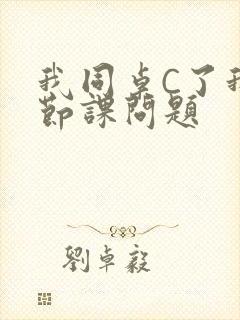 我同桌C了我
節課問題
劉卓毅